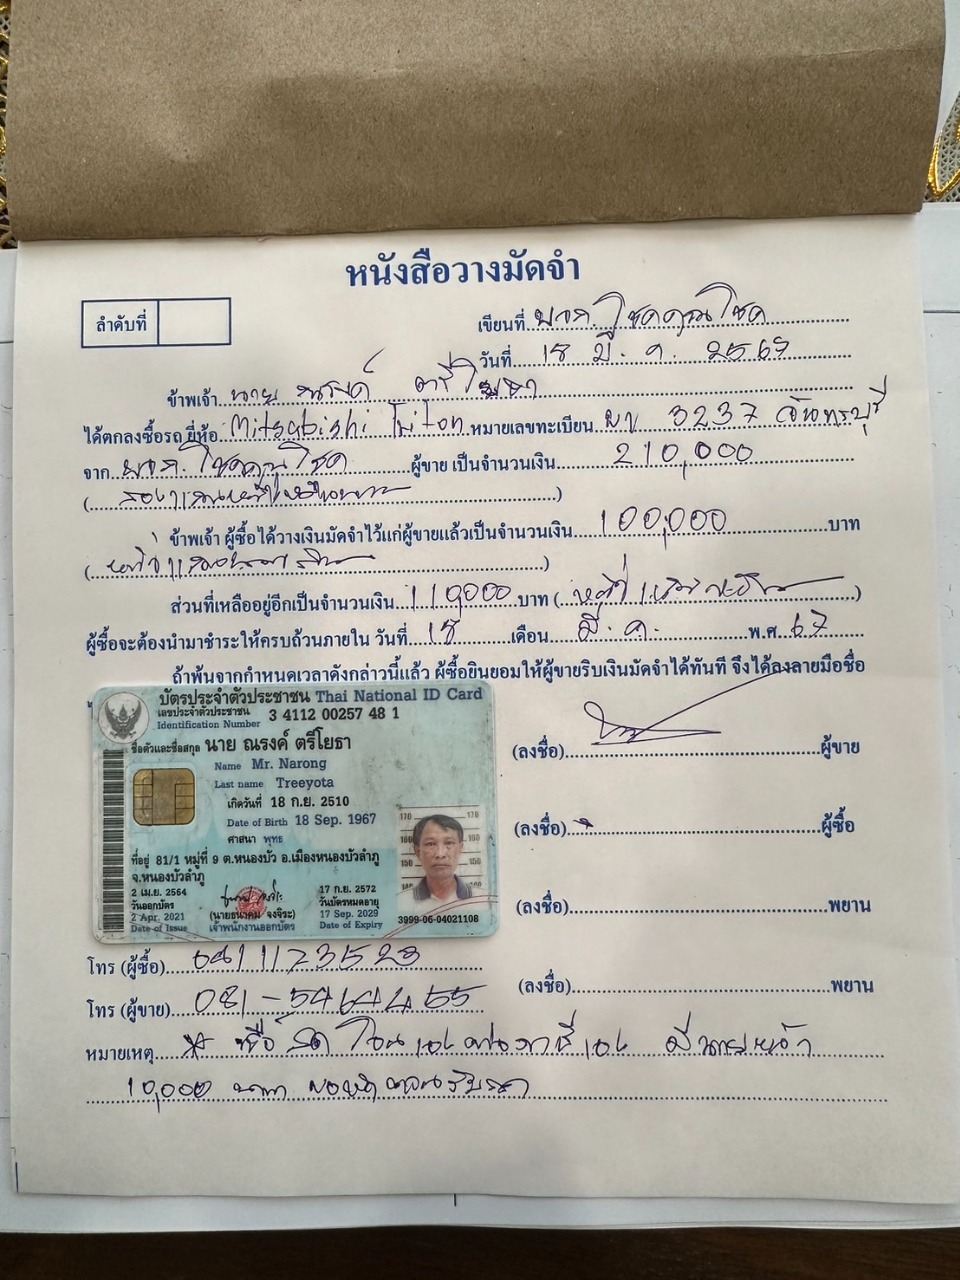 หนังสือวางมัดจำ
ลำดับที่
เขียนที่ หจก. โชคคุณโชค
วันที่ 18 มี.ค. 2567
ข้าพเจ้า นาย ณรงค์ ตรีโยธา
ได้ตกลงซื้อรถ ยี่ห้อ Mitsubishi Triton หมายเลขทะเบียน 3237 จันทรบุรี
จาก หจก. โชคคุณโชค ผู้ขาย เป็นจำนวนเงิน 210,000
(สองแสนหนึ่งหมื่นบาท)
ข้าพเจ้า ผู้ซื้อได้วางเงินมัดจำไว้แก่ผู้ขายแล้วเป็นจำนวนเงิน 100,000 บาท
(หนึ่งแสนบาทถ้วน)
ส่วนที่เหลืออยู่อีกเป็นจำนวนเงิน 110,000 บาท (
ผู้ซื้อจะต้องนำมาชำระให้ครบถ้วนภายใน วันที่ 18 เดือน มี.ค. พ.ศ 67
ถ้าพ้นจากกำหนดเวลาดังกล่าวนี้แล้ว ผู้ซื้อยินยอมให้ผู้ขายริบเงินมัดจำได้ทันที จึงได้ลงลายมือชื่อ
บัตรประจำตัวประชาชน Thai National ID Card
เลขประจำตัวประชาชน
Identification Number
3 4112 00257 48 1
ชื่อตัวและชื่อสกุล นาย ณรงค์ ตรีโยธา
Name Mr. Narong
Last name Treeyota
เกิดวันที่ 18 ก.ย. 2510
Date of Birth 18 Sep. 1967
ศาสนา พุทธ
ที่อยู่ 81/1 หมู่ที่ 9 ต.หนองบัว อ.เมืองหนองบัวลำภู
จ.หนองบัวลำภู
2 เม.ย. 2564
วันออกบัตร
2 Apr. 2021
Date of Issue
(นายธนาคม จงจิระ)
เจ้าพนักงานออกบัตร
17 ก.ย. 2572
วันบัตรหมดอายุ
17 Sep. 2029
Date of Expiry
170 170
160 160
150 150
3999-06-04021108
(ลงชื่อ) ผู้ขาย
(ลงชื่อ) ผู้ซื้อ
(ลงชื่อ) พยาน
(ลงชื่อ) พยาน
โทร (ผู้ซื้อ) 0411173523
โทร (ผู้ขาย) 081-5464455
หมายเหตุ * ซื้อสด โอนเอง มีนายหน้า
10,000 บาท